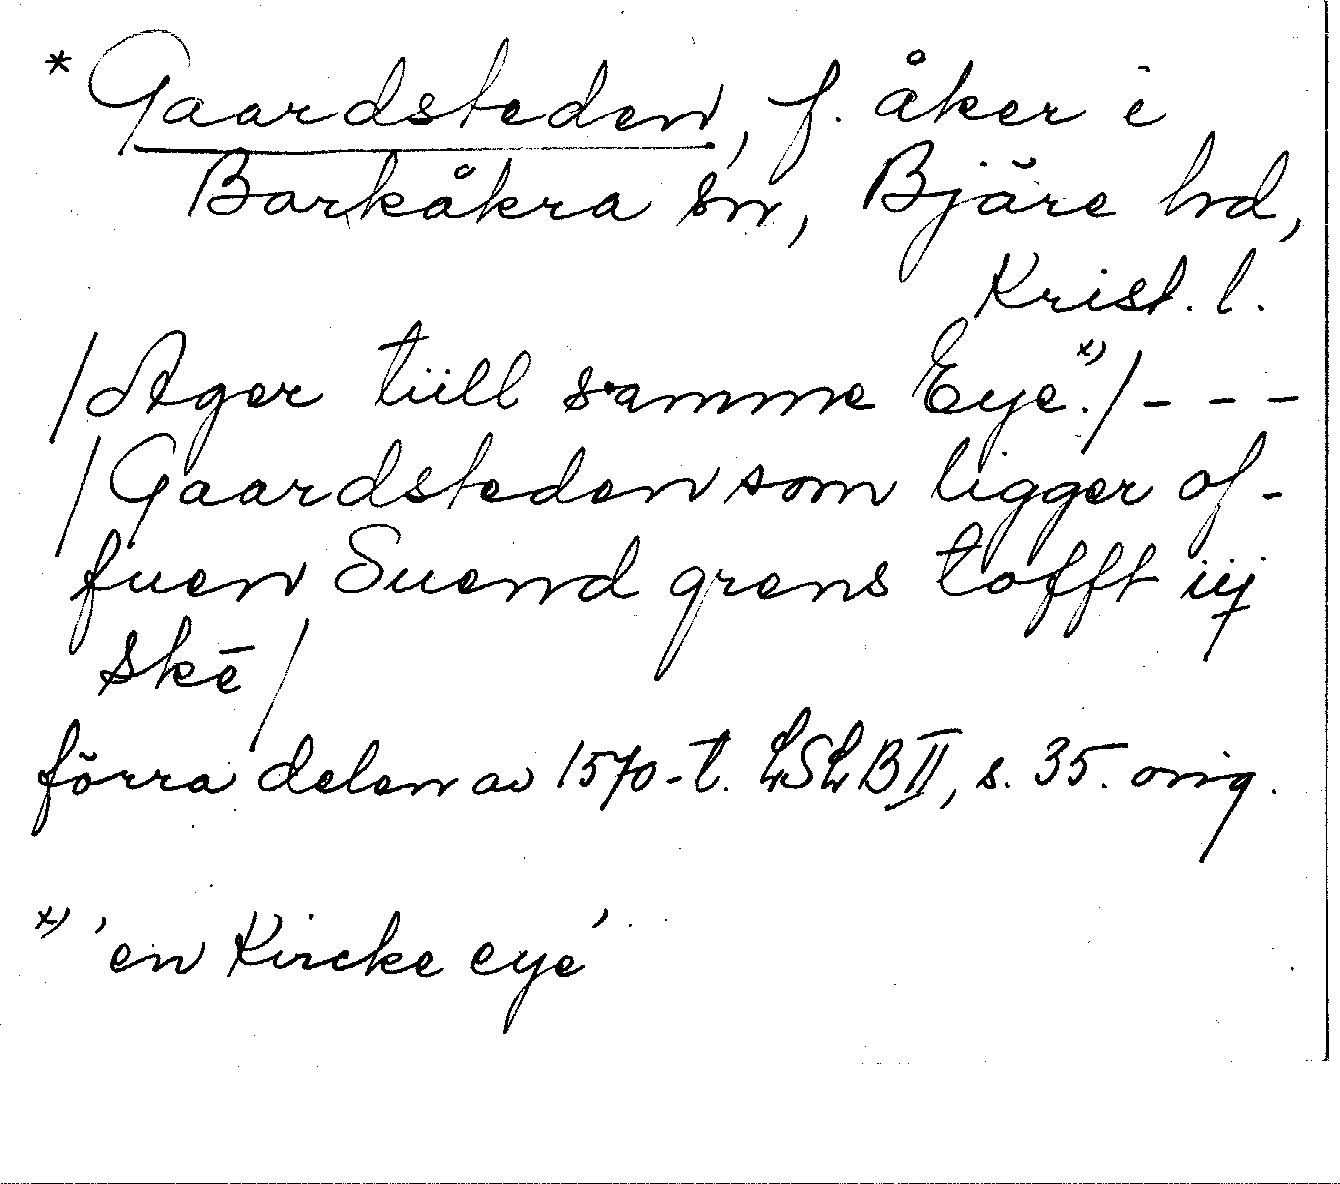 * Gaardsteden, f. åker i
Barkåkra sn, Bjäre hd,
Krist. l.
/Ager tiill samme Eye.x)/---
/Gaardsteden som ligger of-
fuen Suend grens tofft iij
skē/
förra delen av 1570-t. LSLB II, s. 35. orig.
x) 'en Kircke eye'.